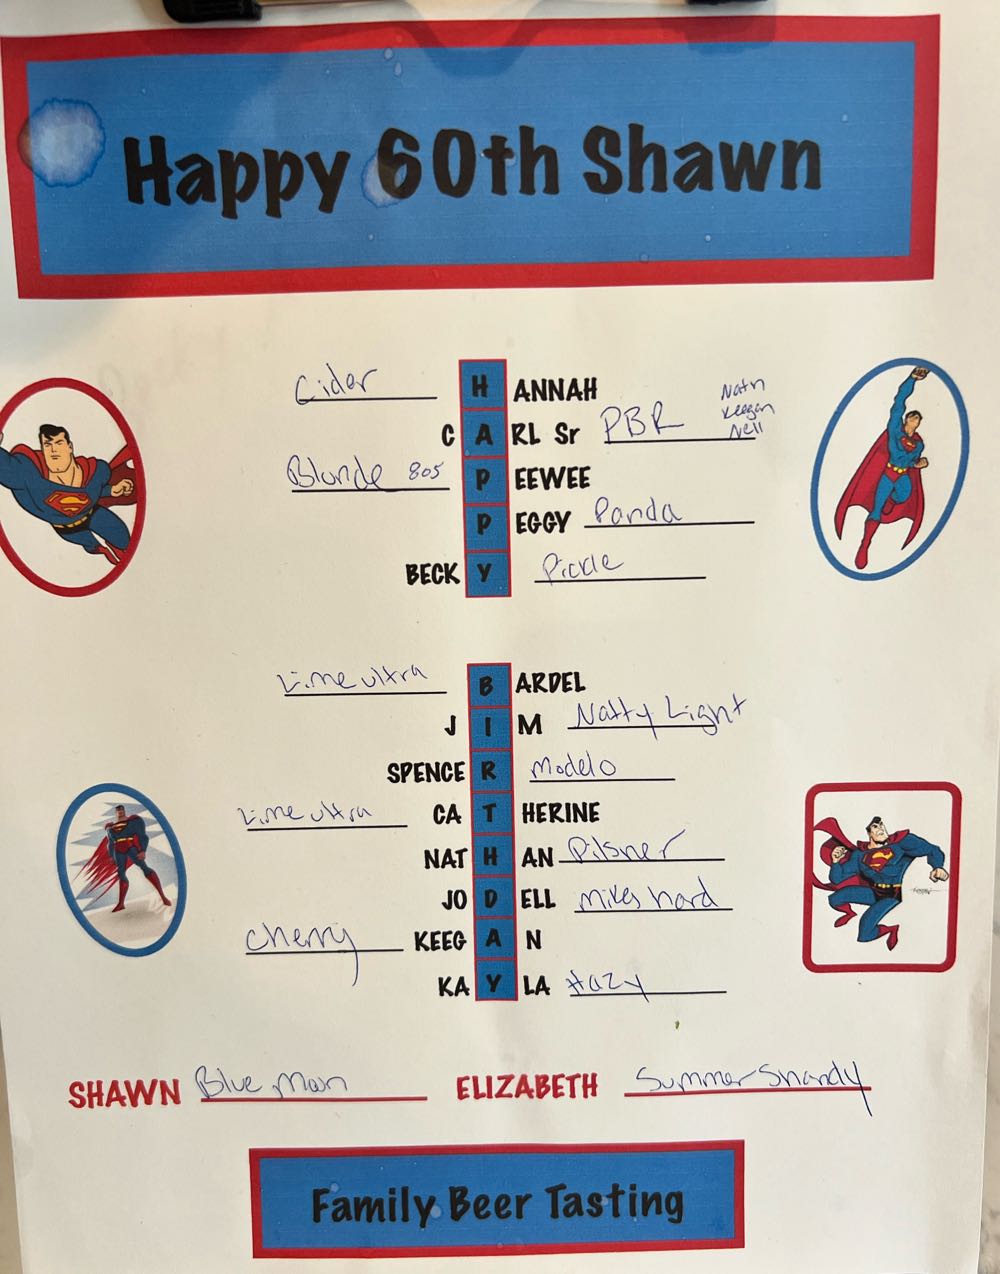 Happy 60th Shawn
Cider HANNAH
Nathn
Keegan
Nell
CARL Sr PBR
Blonde 805 PEEWEE
PEGGY Panda
BECKY Pickle
Lime ultra BARDEL
JIM Natty Light
SPENCER Modelo
Lime ultra CATHERINE
NATHAN Pilsner
JODELL Mikes hard
cherry KEEGAN
KAYLA Hazy
SHAWN Blue Moon ELIZABETH Summer Shandy
Family Beer Tasting